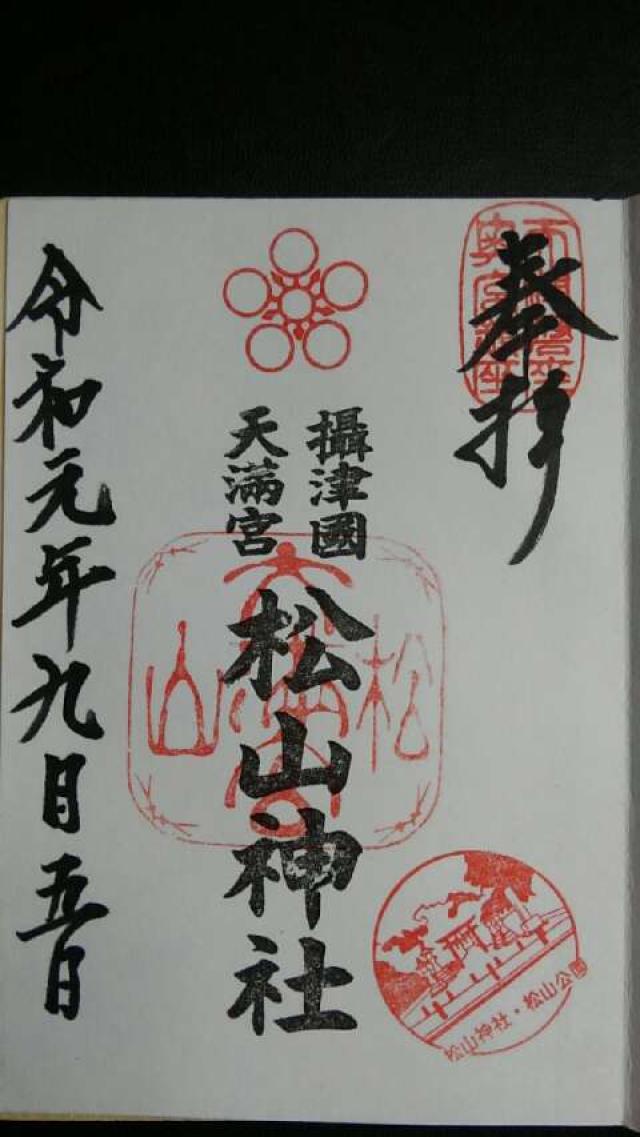 奉拝
攝津國
天満宮
松山神社
松
天満宮
山
令和元年九月五日
松山神社・松山公園